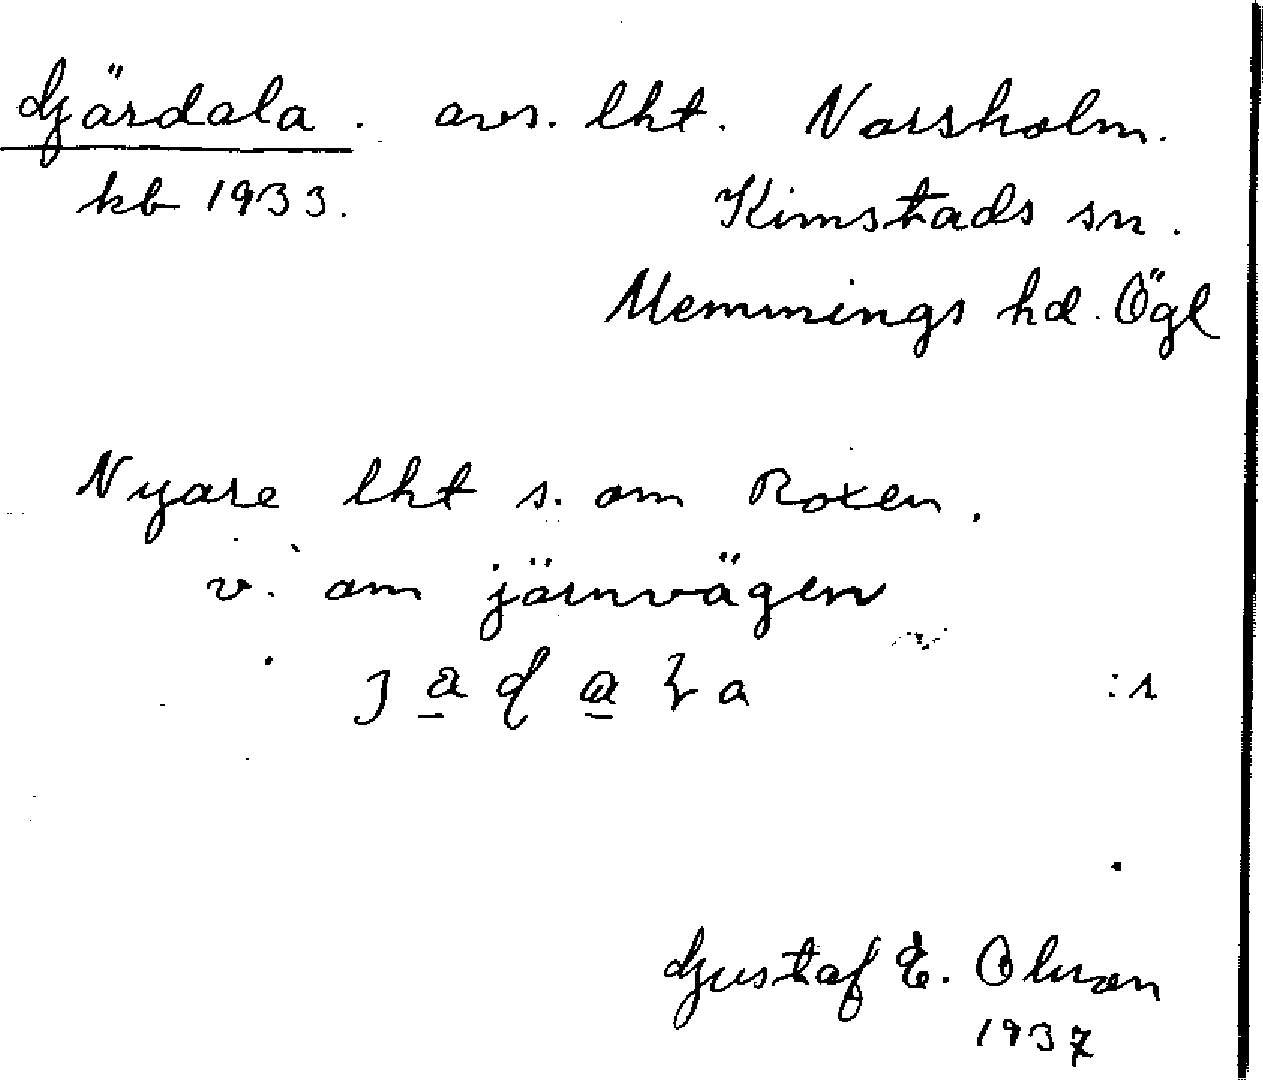 Gärdala. avs. lht. Norsholm.
kb 1933. Kimstads sn.
Memmings hd. Ögl
Nyare lht s. om Roxen.
v. om järnvägen
:s
Gustaf E. Olsson
1937